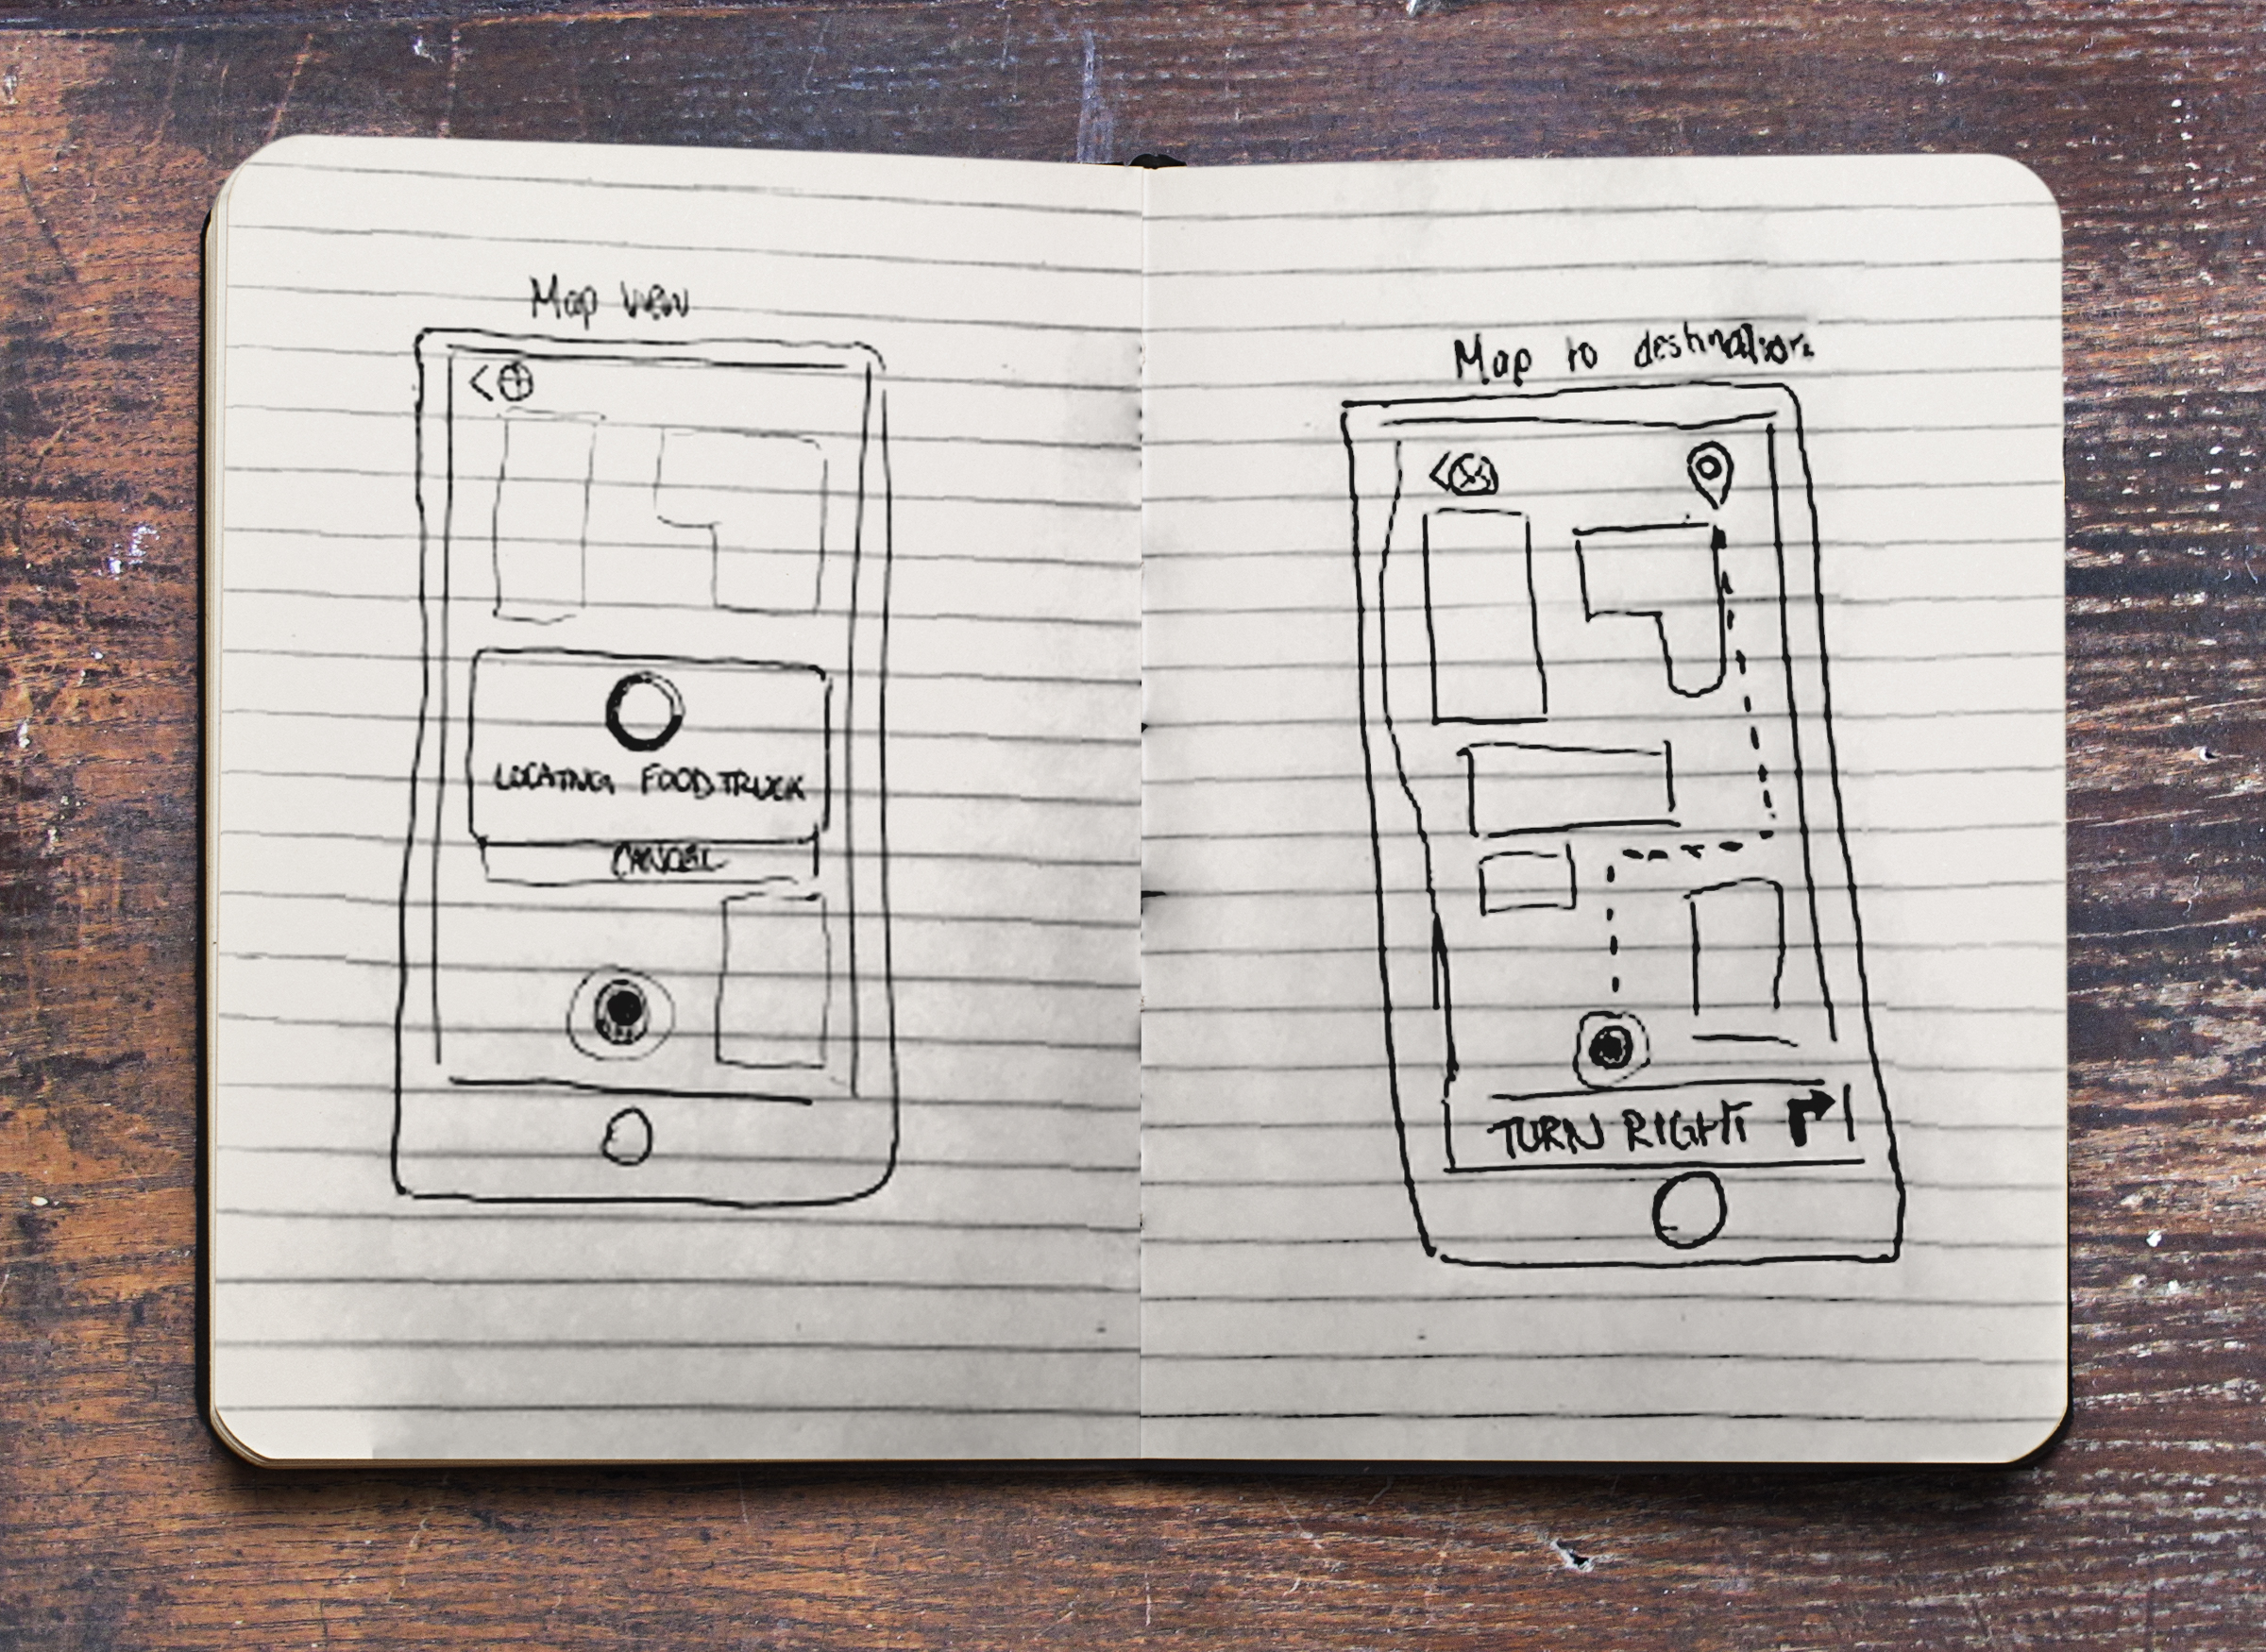 Map view
LOCATING FOODTRUCK
CANCEL
Map to destination
TURN RIGHT